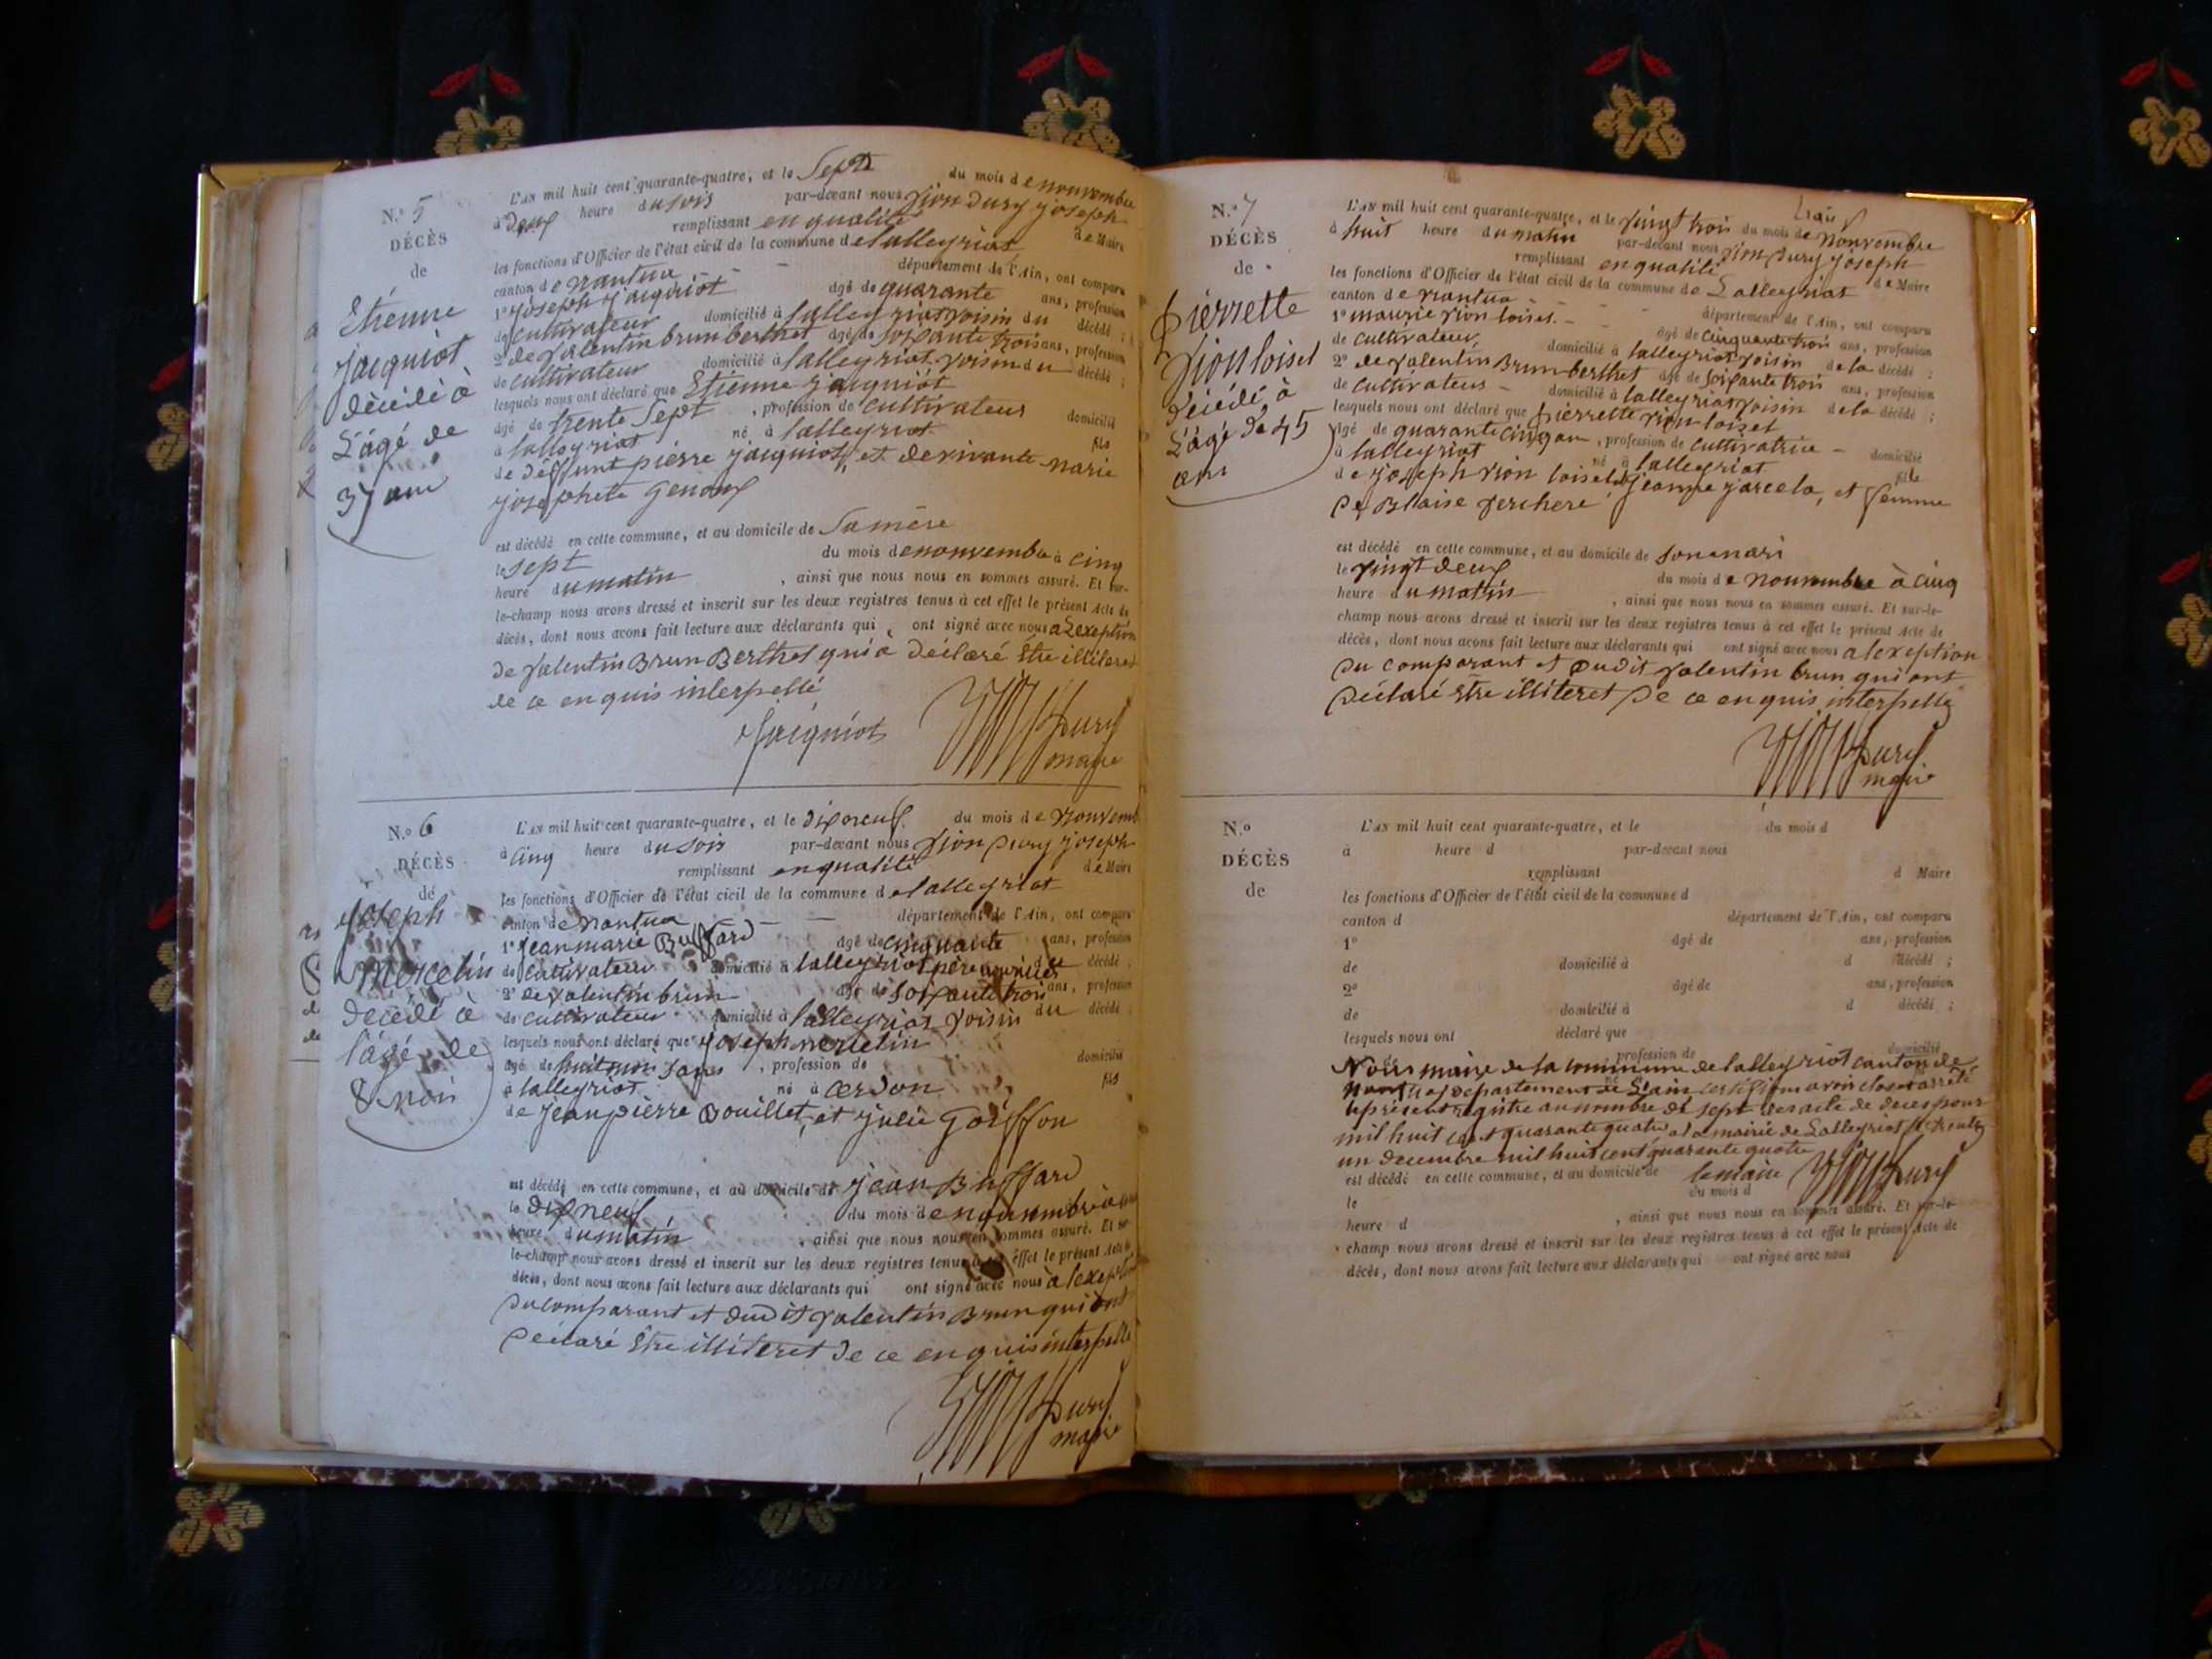 N.º 5
DÉCÈS
de
Etienne
jacquiot
décédé à
L'âgé de
37 ans
L'AN mil huit cent quarante-quatre, et le Sept du mois de nonvembre
à deux heure du soir par-devant nous Vion dury joseph
remplissant en qualité de Maire
les fonctions d'Officier de l'état civil de la commune de lalleyriat
canton de nantua département de l'Ain, ont comparu
1º joseph jacquiot âgé de quarante ans, profession
de cultivateur domicilié à lalleyriat voisin du décédé ;
2º de valentin brun berthet âgé de soixante trois ans, profession
de cultivateur domicilié à lalleyriat voisin du décédé ;
lesquels nous ont déclaré que Etienne jacquiot
âgé de trente Sept , profession de cultivateur domicilié
à lalleyriat né à lalleyriat fils
de déffunt pierre jacquiot, et de vivante marie
josephete Genoux
est décédé en cette commune, et au domicile de Sa mère
le sept du mois de nonvembre à cinq
heure du matin , ainsi que nous nous en sommes assuré. Et sur-
le-champ nous avons dressé et inscrit sur les deux registres tenus à cet effet le présent Acte de
décès, dont nous avons fait lecture aux déclarants qui ont signé avec nous a Lexeption
de valentin Brun Berthet qui a déclaré être illiteret
de ce en quis interpellé
Jacquiot Dury
maire
N.º 6
DÉCÈS
de
joseph
Mercelin
décédé à
l'âgé de
8 moi
L'AN mil huit cent quarante-quatre, et le dixneuf du mois de nonvemb
à cinq heure du soir par-devant nous Vion dury joseph
remplissant en qualité de Maire
les fonctions d'Officier de l'état civil de la commune de lalleyriat
canton de nantua département de l'Ain, ont comparu
1º jean marie Buffard âgé de cinquante ans, profession
de cultivateur domicilié à lalleyriat père nouricier décédé ;
2º de valentin brun âgé de soixante trois ans, profession
de cultivateur domicilié à lalleyriat voisin du décédé ;
lesquels nous ont déclaré que joseph mercelin
âgé de huit moi , profession de domicilié
à lalleyriat né à cerdon fils
de jean pierre Bouillet, et julie Goiffon
est décédé en cette commune, et au domicile de jean Buffard
le dixneuf du mois de nonvembre à
heure du matin , ainsi que nous nous en sommes assuré. Et sur-
le-champ nous avons dressé et inscrit sur les deux registres tenus à cet effet le présent Acte de
décès, dont nous avons fait lecture aux déclarants qui ont signé avec nous à lexeption
du comparant et dudit valentin Brun qui ont
déclaré être illiteret de ce en quis interpellé
Dury
maire
N.º 7
DÉCÈS
de
pierrette
Vion loiset
décédé à
L'âgé de 45
ans
L'AN mil huit cent quarante-quatre, et le vingt trois du mois de nonvembre
à huit heure du matin par-devant nous Vion dury joseph
remplissant en qualité de Maire
les fonctions d'Officier de l'état civil de la commune de Lalleyriat
canton de nantua département de l'Ain, ont comparu
1º maurie vion loiset âgé de cinquante trois ans, profession
de cultivateur, domicilié à lalleyriat voisin de la décédé ;
2º de valentin Brun berthet âgé de soixante trois ans, profession
de cultivateur domicilié à lalleyriat voisin de la décédé ;
lesquels nous ont déclaré que pierrette vion loiset
âgé de quarante cinq ans , profession de cultivatrice domicilié
à lalleyriat né à lalleyriat fille
de joseph vion loiset et jeanne jarcelo, et femme
de Blaise verchere
est décédé en cette commune, et au domicile de son mari
le vingt deux du mois de nonvembre à cinq
heure du matin , ainsi que nous nous en sommes assuré. Et sur-le-
champ nous avons dressé et inscrit sur les deux registres tenus à cet effet le présent Acte de
décès, dont nous avons fait lecture aux déclarants qui ont signé avec nous a lexeption
du comparant et dudit valentin brun qui ont
déclaré être illiteret de ce en quis interpellé
Dury
maire
N.º
DÉCÈS
de
L'AN mil huit cent quarante-quatre, et le du mois d
à heure d par-devant nous
remplissant d Maire
les fonctions d'Officier de l'état civil de la commune d
canton d département de l'Ain, ont comparu
1º âgé de ans, profession
de domicilié à d décédé ;
2º âgé de ans, profession
de domicilié à d décédé ;
lesquels nous ont déclaré que
profession de domicilié
Nous maire de la commune de lalleyriat canton de
nantua département de L'ain, certifions avoir clos et arrêté
le présent registre au nombre de sept des acte de deces pour
mil huit cent quarante quatre a la mairie de Lalleyriat le trente
un decembre mil huit cent quarante quatre
est décédé en cette commune, et au domicile de le maire Dury
le du mois d
heure d , ainsi que nous nous en sommes assuré. Et sur-le-
champ nous avons dressé et inscrit sur les deux registres tenus à cet effet le présent Acte de
décès, dont nous avons fait lecture aux déclarants qui ont signé avec nous